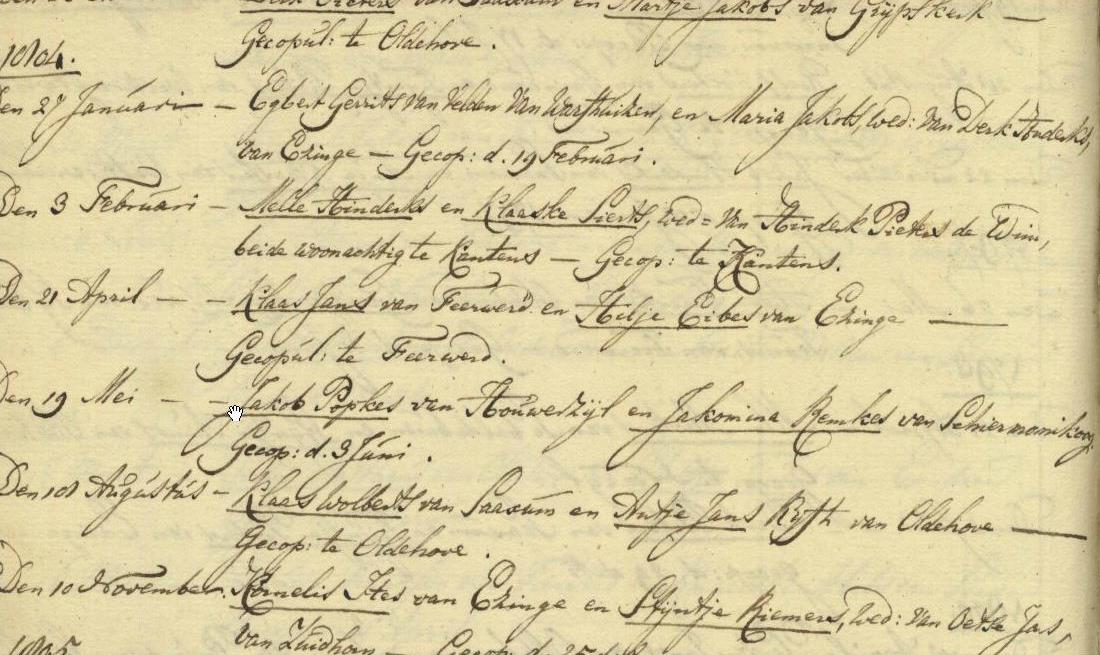 Derk Pieters van Saaxum en Martje Jakobs van Grijpskerk —
Gecopúl: te Oldehove.
1804.
Den 27 Januari — Egbert Gerrits van Velden van Warfhuizen, en Maria Jakobs, wed: van Derk Hinderks,
van Ezinge — Gecop: d. 19 Februari.
Den 3 Februari — Melle Hinderks en Klaaske Sierts, wed= van Hinderk Pieters de Wim,
beide woonachtig te Kantens — Gecop: te Kantens.
Den 21 April — — Klaas Jans van Feerwerd en Hilje Eibes van Ezinge —
Gecopúl: te Feerwerd.
Den 19 Mei — — Jakob Popkes van Houwerzijl en Jakomina Remkes van Schiermonikoog.
Gecop: d. 3 Júni.
Den 18 Augústús — Klaas Wolberts van Saaxum en Antje Jans Ryth van Oldehove —
Gecop: te Oldehove.
Den 10 November. Kornelis Ites van Ezinge en Stijntje Riemers, wed: van Oetse Jas,
van Zuidhorn — Gecop: d. 25
1805